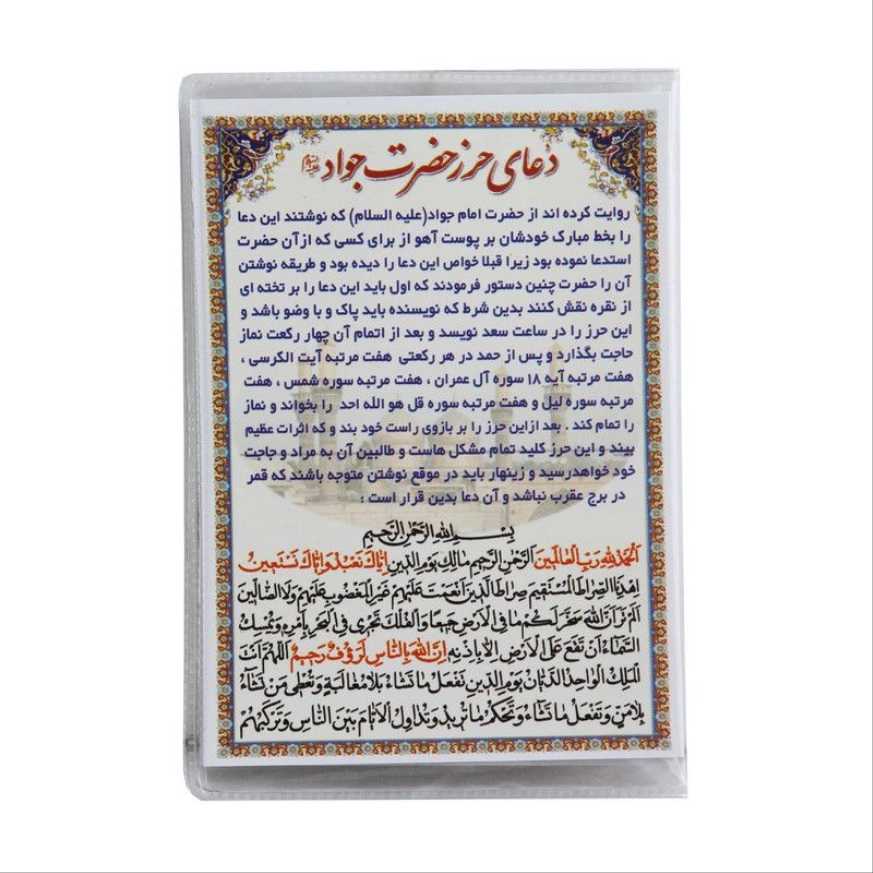 دعای حرز حضرت جواد
روایت کرده اند از حضرت امام جواد(علیه السلام) که نوشتند این دعا
را بخط مبارک خودشان بر پوست آهو از برای کسی که ازآن حضرت
استدعا نموده بود زیرا قبلا خواص این دعا را دیده بود و طریقه نوشتن
آن را حضرت چنین دستور فرمودند که اول باید این دعا را بر تخته ای
از نقره نقش کنند بدین شرط که نویسنده باید پاک و با وضو باشد و
این حرز را در ساعت سعد نویسد و بعد از اتمام آن چهار رکعت نماز
حاجت بگذارد و پس از حمد در هر رکعتی هفت مرتبه آیت الکرسی ،
هفت مرتبه آیه ۱۸ سوره آل عمران ، هفت مرتبه سوره شمس ، هفت
مرتبه سوره لیل و هفت مرتبه سوره قل هو الله احد را بخواند و نماز
را تمام کند . بعد ازاین حرز را بر بازوی راست خود بند و که اثرات عظیم
بیند و این حرز کلید تمام مشکل هاست و طالبین آن به مراد و حاجت
خود خواهدرسید و زینهار باید در موقع نوشتن متوجه باشند که قمر
در برج عقرب نباشد و آن دعا بدین قرار است :
بِسْمِ اللهِ الرَّحْمٰنِ الرَّحِیمِ
اَلْحَمْدُ لِلّهِ رَبِّ الْعالَمینَ الرَّحْمٰنِ الرَّحیمِ مالِكِ یَوْمِ الدّینِ اِیّاكَ نَعْبُدُ وَ اِیّاكَ نَسْتَعینُ
اِهْدِنَا الصِّراطَ الْمُسْتَقیمَ صِراطَ الَّذینَ اَنْعَمْتَ عَلَیْهِمْ غَیْرِ الْمَغْضُوبِ عَلَیْهِمْ وَلَا الضّالّینَ
اَلَمْ تَرَ اَنَّ اللهَ سَخَّرَ لَكُمْ ما فِی الْاَرْضِ جَمیعًا وَ الْفُلْكَ تَجْری فِی الْبَحْرِ بِاَمْرِهِ وَ یُمْسِكُ
السَّماءَ اَنْ تَقَعَ عَلَی الْاَرْضِ اِلّا بِاِذْنِهِ اِنَّ اللهَ بِالنّاسِ لَرَؤُفٌ رَحیمٌ اَللّهُمَّ اَنْتَ
الْمَلِكُ الْواحِدُ الدَّیّانُ یَوْمِ الدّینِ تَفْعَلُ ما تَشاءُ بِلا مُغالَبَةٍ وَ تُعْطی مَنْ تَشاءُ
بِلا مَنٍّ وَ تَفْعَلُ ما تَشاءُ وَ تَحْكُمُ ما تُریدُ وَ تُداوِلُ الْاَیّامَ بَیْنَ النّاسِ وَ تُرَكِّبُهُمْ